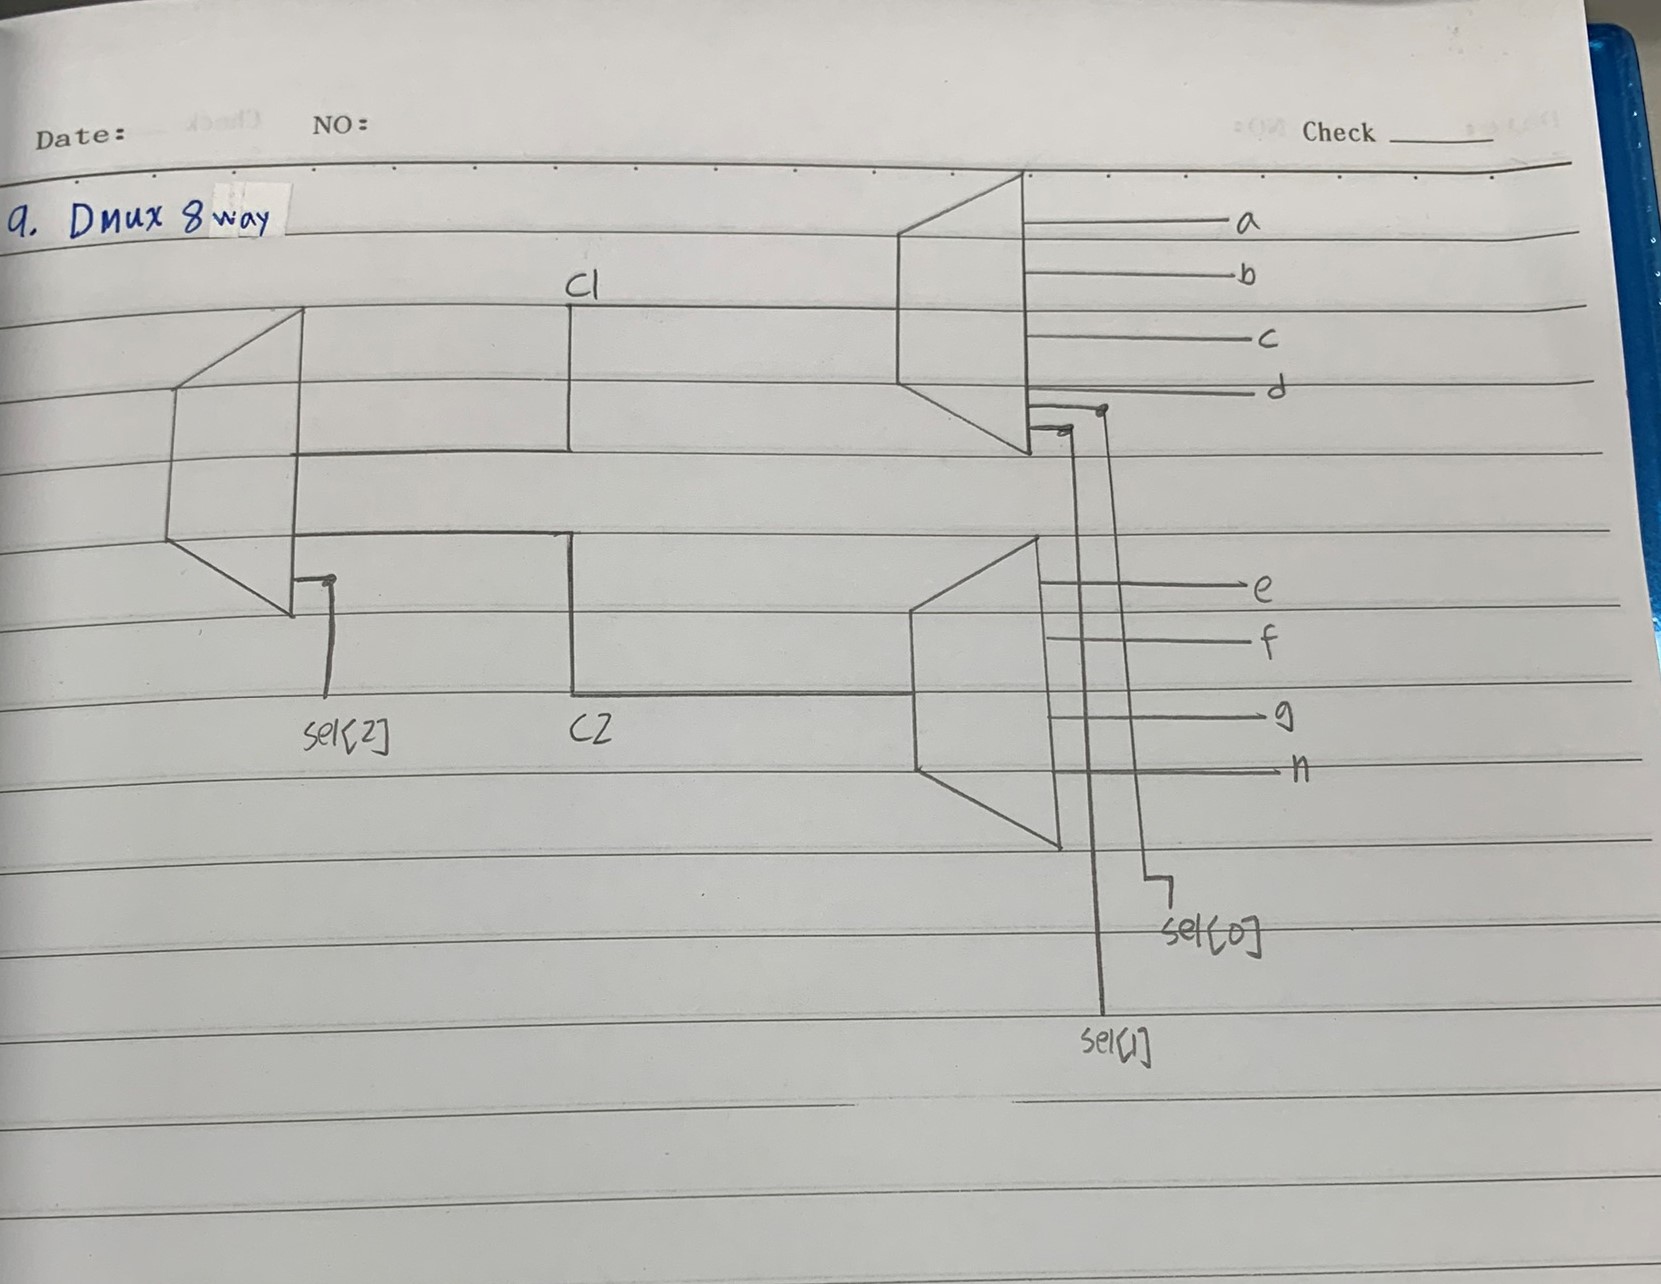 Date: NO: Check
9. DMUX 8 way
a
b
C1
c
d
e
f
g
sel[2] C2
h
sel[0]
sel[1]